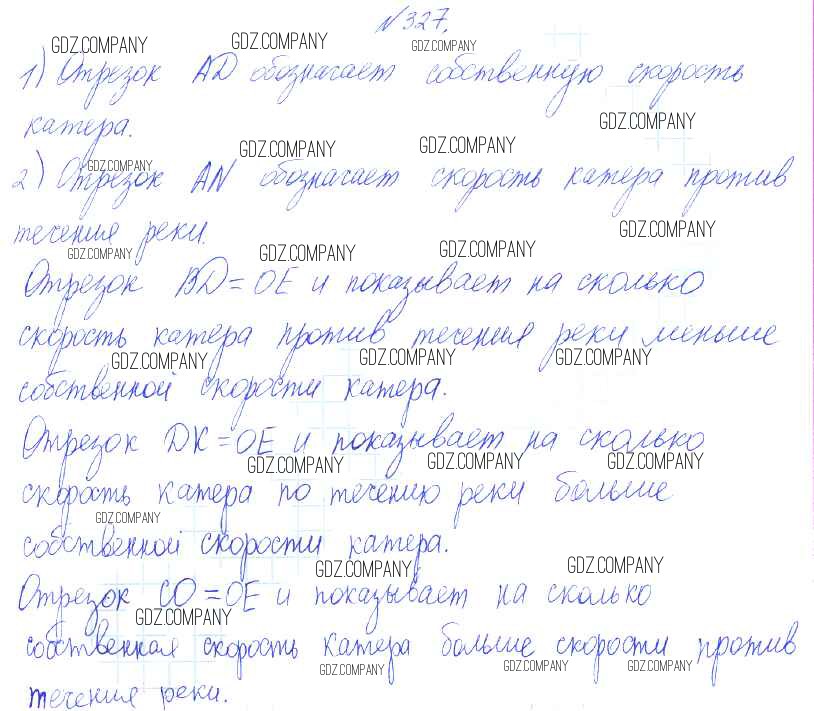 №327.
GDZ.COMPANY GDZ.COMPANY GDZ.COMPANY
1) Отрезок AD обозначает собственную скорость
GDZ.COMPANY
катера.
GDZ.COMPANY GDZ.COMPANY GDZ.COMPANY
2) Отрезок AN обозначает скорость катера против
течения реки.
GDZ.COMPANY GDZ.COMPANY GDZ.COMPANY GDZ.COMPANY
Отрезок BD = OE и показывает на сколько
скорость катера против течения реки меньше
GDZ.COMPANY GDZ.COMPANY GDZ.COMPANY
собственной скорости катера.
Отрезок DK = OE и показывает на сколько
GDZ.COMPANY GDZ.COMPANY GDZ.COMPANY
скорость катера по течению реки больше
GDZ.COMPANY
собственной скорости катера.
GDZ.COMPANY GDZ.COMPANY
Отрезок CO = OE и показывает на сколько
GDZ.COMPANY
собственная скорость катера больше скорости против
GDZ.COMPANY GDZ.COMPANY GDZ.COMPANY
течения реки.